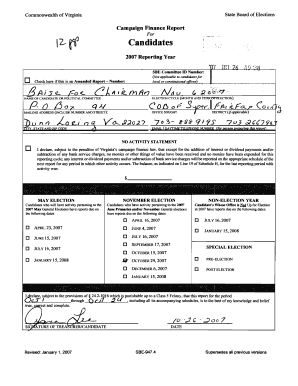 Commonwealth of Virginia
State Board of Elections
Campaign Finance Report
For
Candidates
12 pp
2007 Reporting Year
SBE Committee ID Number:
(Not applicable to candidates for local or constitutional offices)
Check here if this is an Amended Report - Number:
Baise For Chairman Nov. 6 2007
NAME OF CANDIDATE OR POLITICAL COMMITTEE
P O Box 94
Fairfax County
MAILING ADDRESS
OFFICE SOUGHT
DISTRICT
Dunn Loring Va. 22027
CITY, STATE AND ZIP CODE
NO ACTIVITY STATEMENT
I declare, subject to the penalties of Virginia's campaign finance law, that except for the addition of interest or dividend payments and/or
subtraction of any bank service charges, no money or other things of value have been received and no monies have been expended for this
reporting cycle; any interest or dividend payments and/or subtraction of bank service charges will be reported on the appropriate schedule of the
next report for any period in which other activity occurs. The balance, as indicated on Line 19 of Schedule H, for the last reporting period with
activity was:
$
MAY ELECTION
Candidates who will have participated in the
2007 May General Elections have reports due on
the following dates:
APRIL 23, 2007
JUNE 15, 2007
JULY 16, 2007
JANUARY 15, 2008
NOVEMBER ELECTION
Candidates who have activity pertaining to the 2007
June Primaries and/or November General elections
have reports due on the following dates:
APRIL 16, 2007
JUNE 4, 2007
JULY 16, 2007
SEPTEMBER 17, 2007
OCTOBER 15, 2007
OCTOBER 29, 2007
DECEMBER 6, 2007
JANUARY 15, 2008
NON-ELECTION YEAR
Candidates Whose Office is Not Up for Election
in 2007 have reports due on the following dates:
JULY 16, 2007
JANUARY 15, 2008
SPECIAL ELECTION
PRE-ELECTION
POST ELECTION
I declare, subject to the provisions of § 24.2-1016 which is punishable up to a Class 5 Felony, that this report for the period
Oct 1 through Oct 24, including all its accompanying schedules, is to the best of my knowledge and belief
true, correct and complete.
10-26-2007
SIGNATURE OF TREASURER/CANDIDATE
DATE
Revised: January 1, 2007
SBE-947.4
Supersedes all previous versions